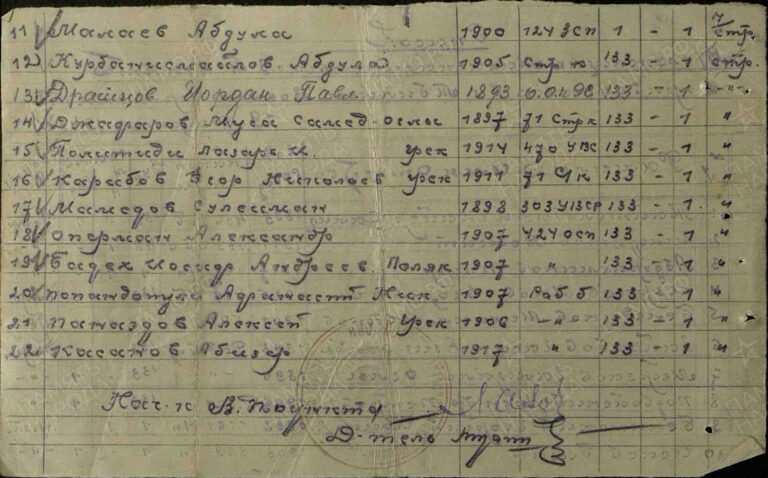 11 Малаев Абдула 1900 124 ЗСП 1 - 1 стр.
12 Курбанисмаилов Абдула 1905 Стр. к 133 - 1 стр.
13 Драйцов Иордан Павл 1893 133 - 1 -"-
14 Джафаров Муса Самед-оглы 1897 71 Стрк 133 - 1 "
15 Политиди Лазарь И. грек 1914 470 133 - 1 "
16 Карибов Егор Николаев грек 1911 71 С/к 133 - 1 "
17 Мамедов Сулейман 1898 303 133 - 1 "
18 Оперман Александр 1907 424 осп 133 - 1 "
19 Бадех Иосифр Андреев Поляк 1907 " 133 - 1 "
20 Попандопуло Адранасти Неск 1907 Раб б 133 - 1 "
21 Паназдов Алексей грек 1906 -"- 133 - 1 "
22 Касанов Абизер 1917 " 133 - 1 "
Нач-к В. Поункта
Д-тель